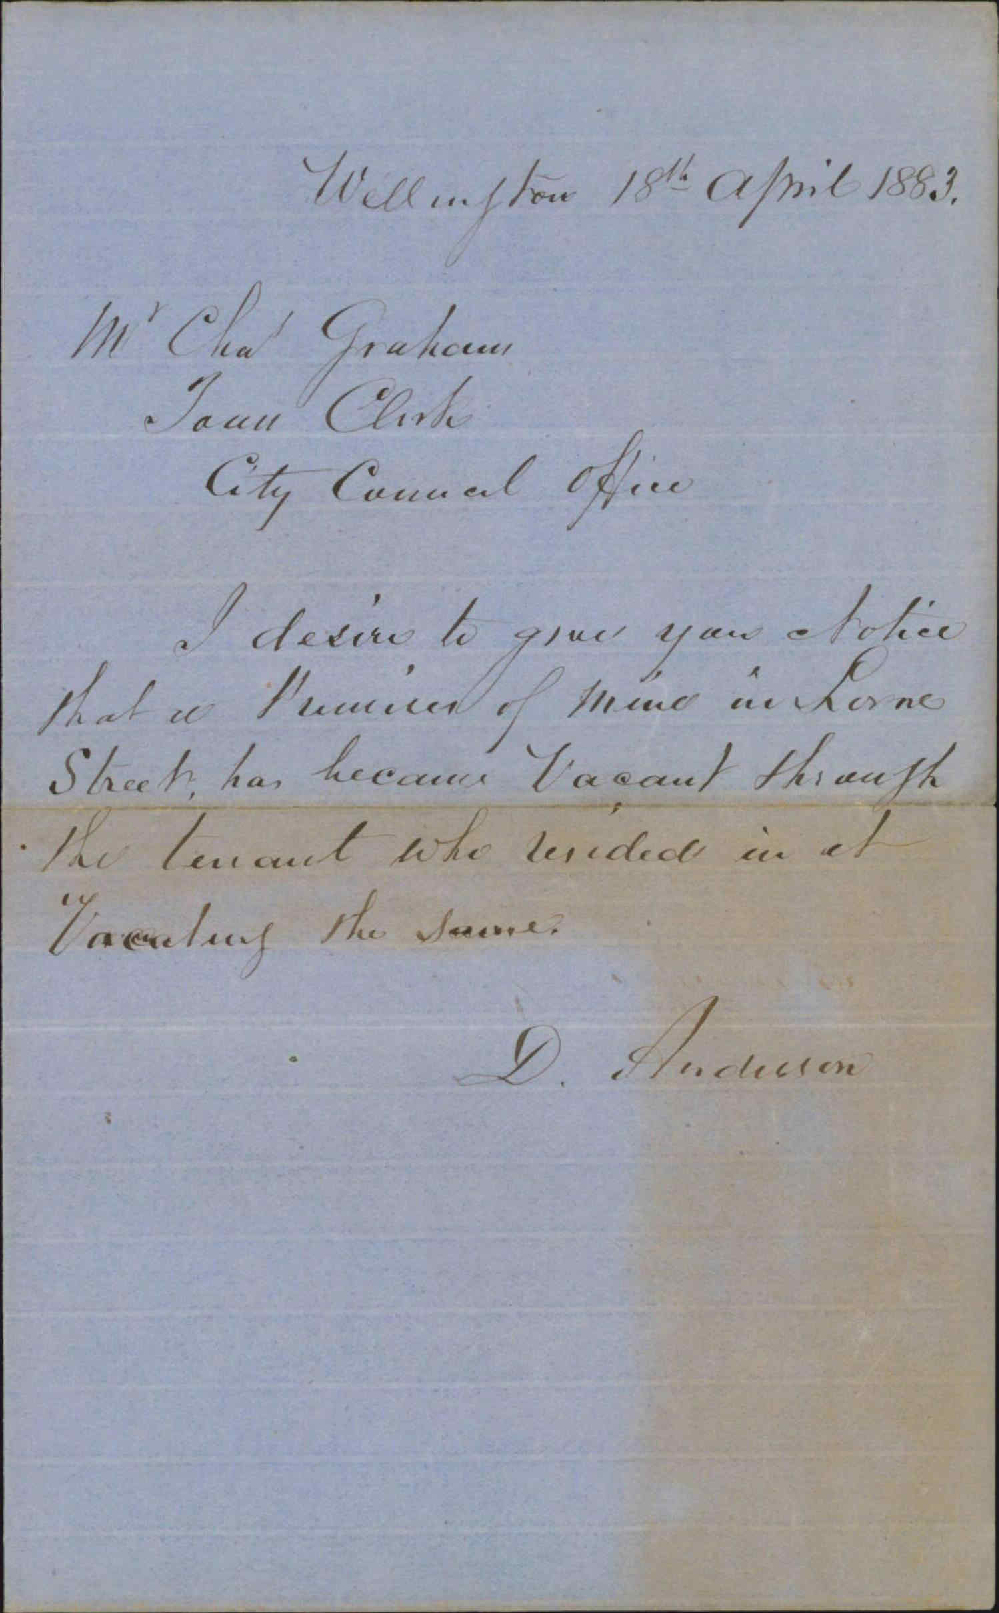 Wellington 18th April 1883.
Mr Chas Graham
Town Clerk
City Council Office
I desire to give you Notice
that a Premises of mine in Lorne
Street, has became Vacant through
the tenant who resided in it
Vacating the same.
D. Anderson